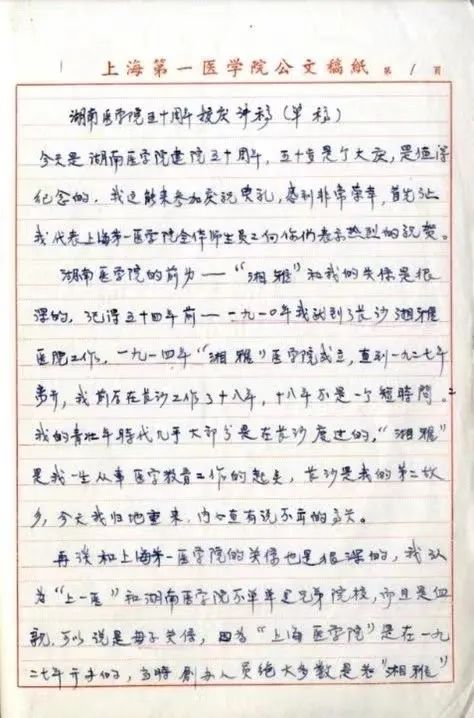 上海第一医学院公文稿紙 第 1 頁
湖南医学院五十周年校庆讲稿(草稿)
今天是湖南医学院建院五十周年,五十岁是个大庆,是值得
纪念的,我这能来参加庆祝典礼,感到非常荣幸,首先让
我代表上海第一医学院全体师生员工向你们表示热烈的祝贺。
湖南医学院的前身——“湘雅”和我的关係是很
深的,记得五十四年前——一九一〇年我就到了长沙湘雅
医院工作。一九一四年“湘雅”医学院成立,直到一九二七年
离开,我前后在长沙工作了十八年,十八年不是一个短時間。
我的青壮年時代几乎大部分是在长沙度过的,“湘雅”
是我一生从事医学教育工作的起点,长沙是我的第二故
乡,今天我旧地重来,内心直有说不出的高兴。
再谈和上海第一医学院的关係也是很深的,我认
为“上一医”和湖南医学院不单单是兄弟院校,而且是血
親,可以说是母子关係,因为“上海医学院”是在一九
二七年开办的,当時創办人员绝大多数是老“湘雅”